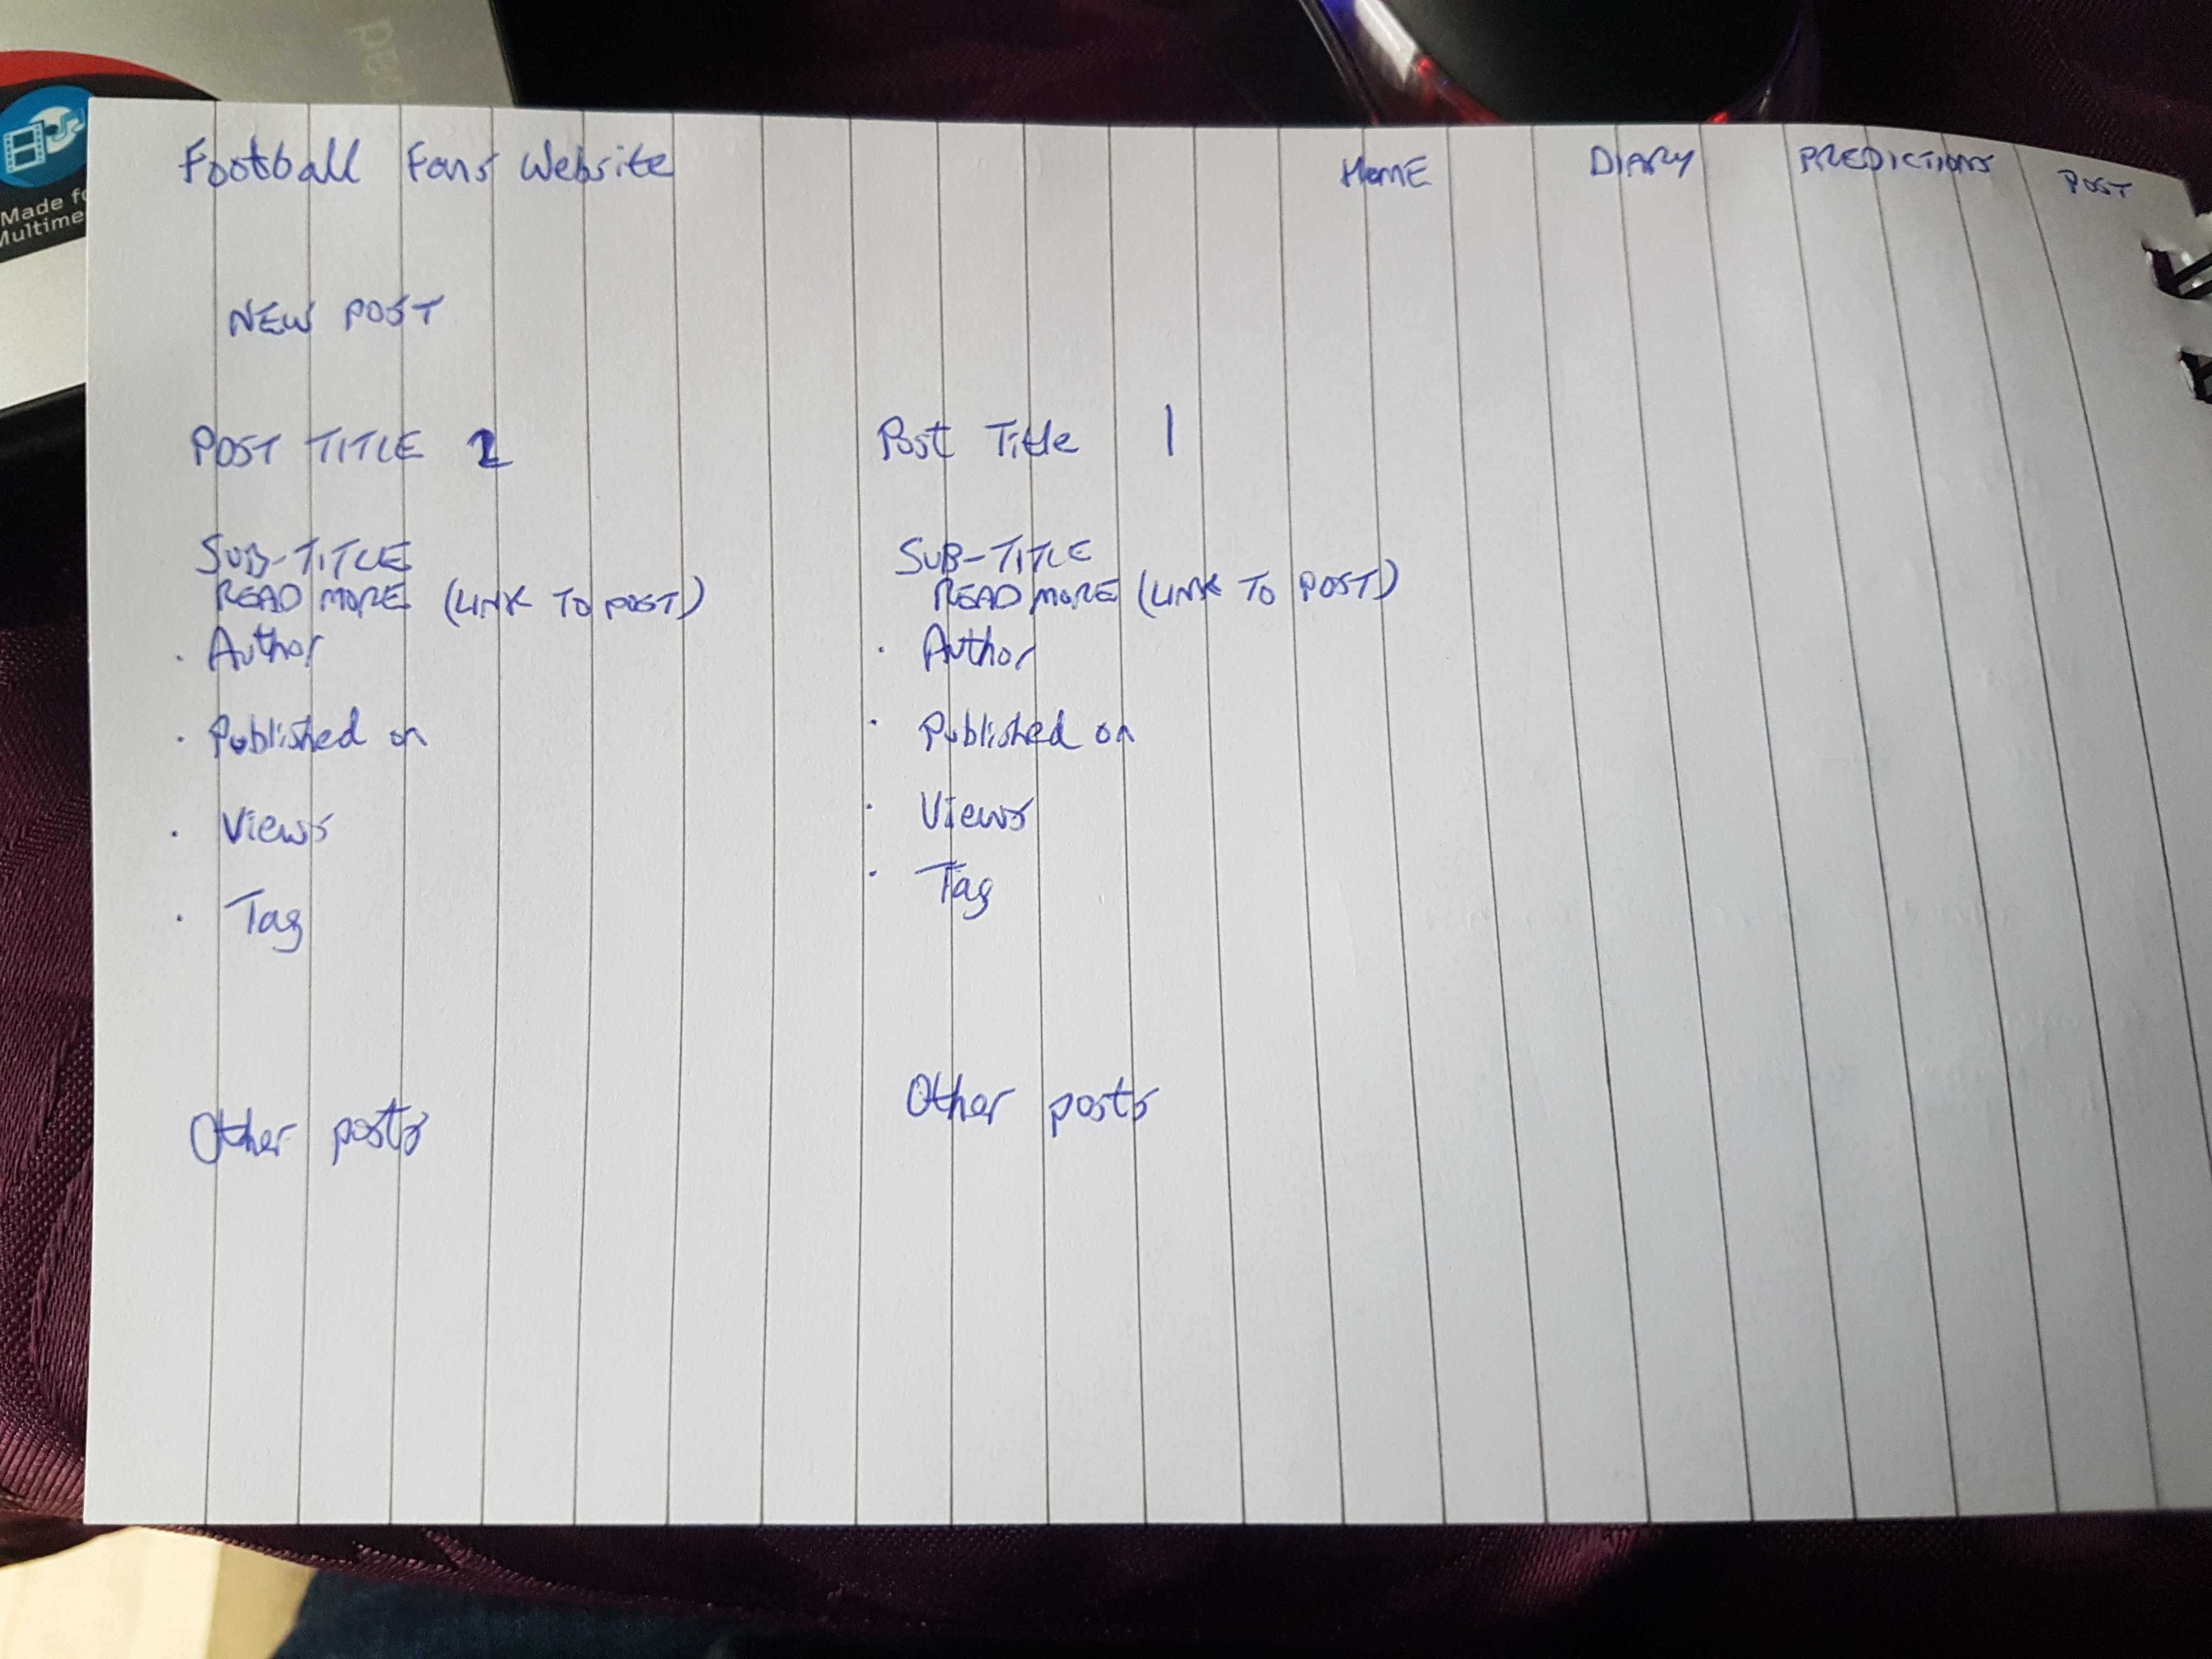 Football Fans Website HOME DIARY PREDICTIONS POST
NEW POST
POST TITLE 2
SUB-TITLE
READ MORE (LINK TO POST)
. Author
. Published on
. Views
. Tag
Other posts
Post Title 1
SUB-TITLE
READ MORE (LINK TO POST)
. Author
. Published on
. Views
. Tag
Other posts
Made
Multime
pad